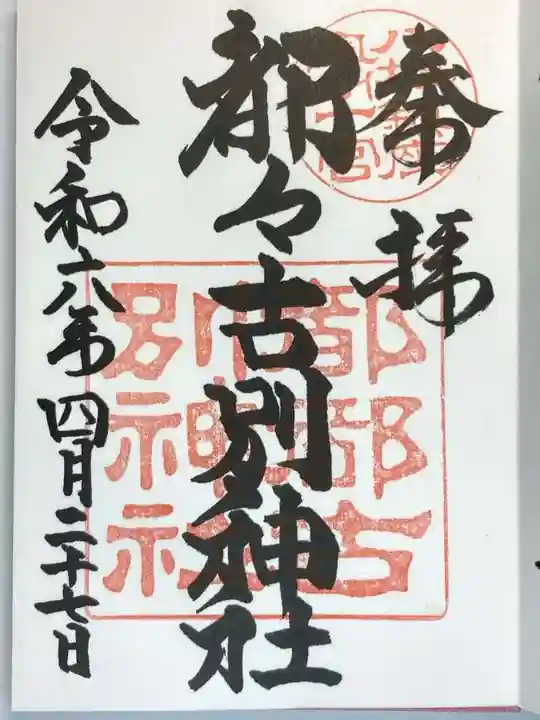 奉拝
都々古別神社
令和六年四月二十七日